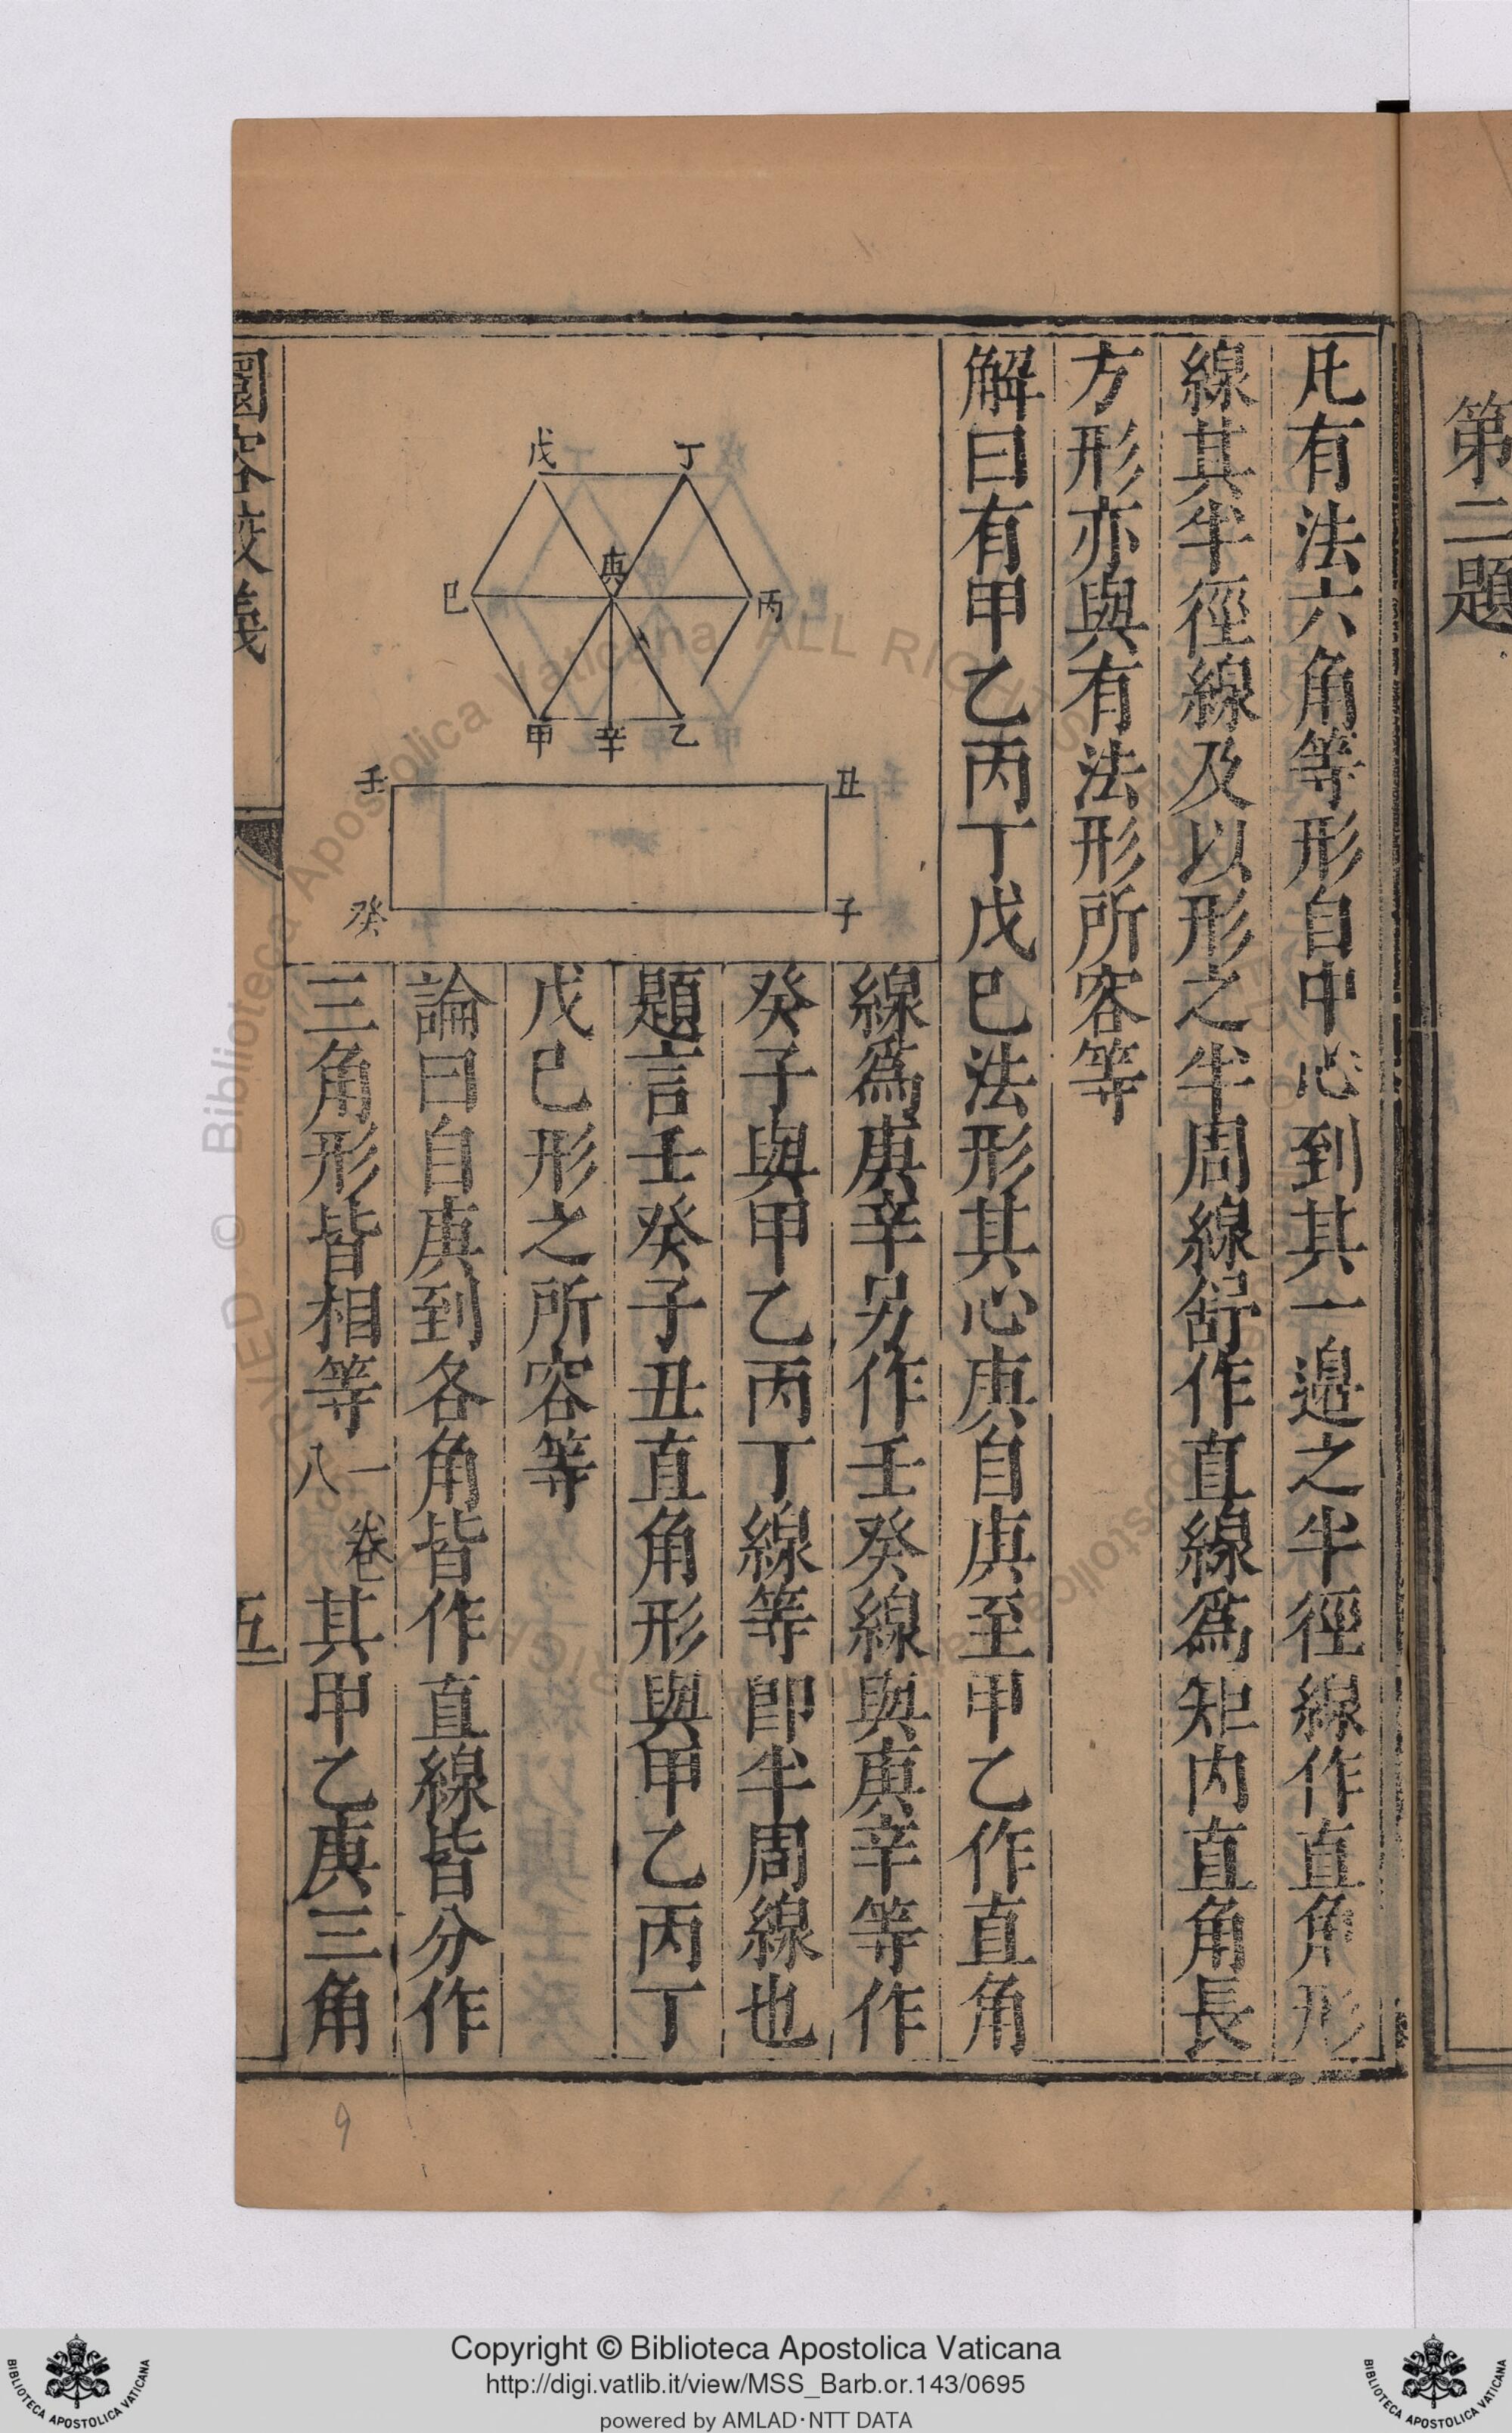 第二題
凡有法六角等形自中心到其一邉之半徑線作直角形
線其半徑線及以形之半周線舒作直線爲矩内直角長
方形亦與有法形所容等
解曰有甲乙丙丁戊巳法形其心庚自庚至甲乙作直角
線爲庚辛另作壬癸線與庚辛等作
癸子與甲乙丙丁線等卽半周線也
題言壬癸子丑直角形與甲乙丙丁
戊巳形之所容等
論曰自庚到各角皆作直線皆分作
三角形皆相等一卷八其甲乙庚三角
戊
丁
庚
巳
丙
甲
辛
乙
壬
丑
癸
子
圜容較義
五
9
Copyright © Biblioteca Apostolica Vaticana
http://digi.vatlib.it/view/MSS_Barb.or.143/0695
powered by AMLAD·NTT DATA
BIBLIOTECA APOSTOLICA VATICANA
BIBLIOTECA APOSTOLICA VATICANA